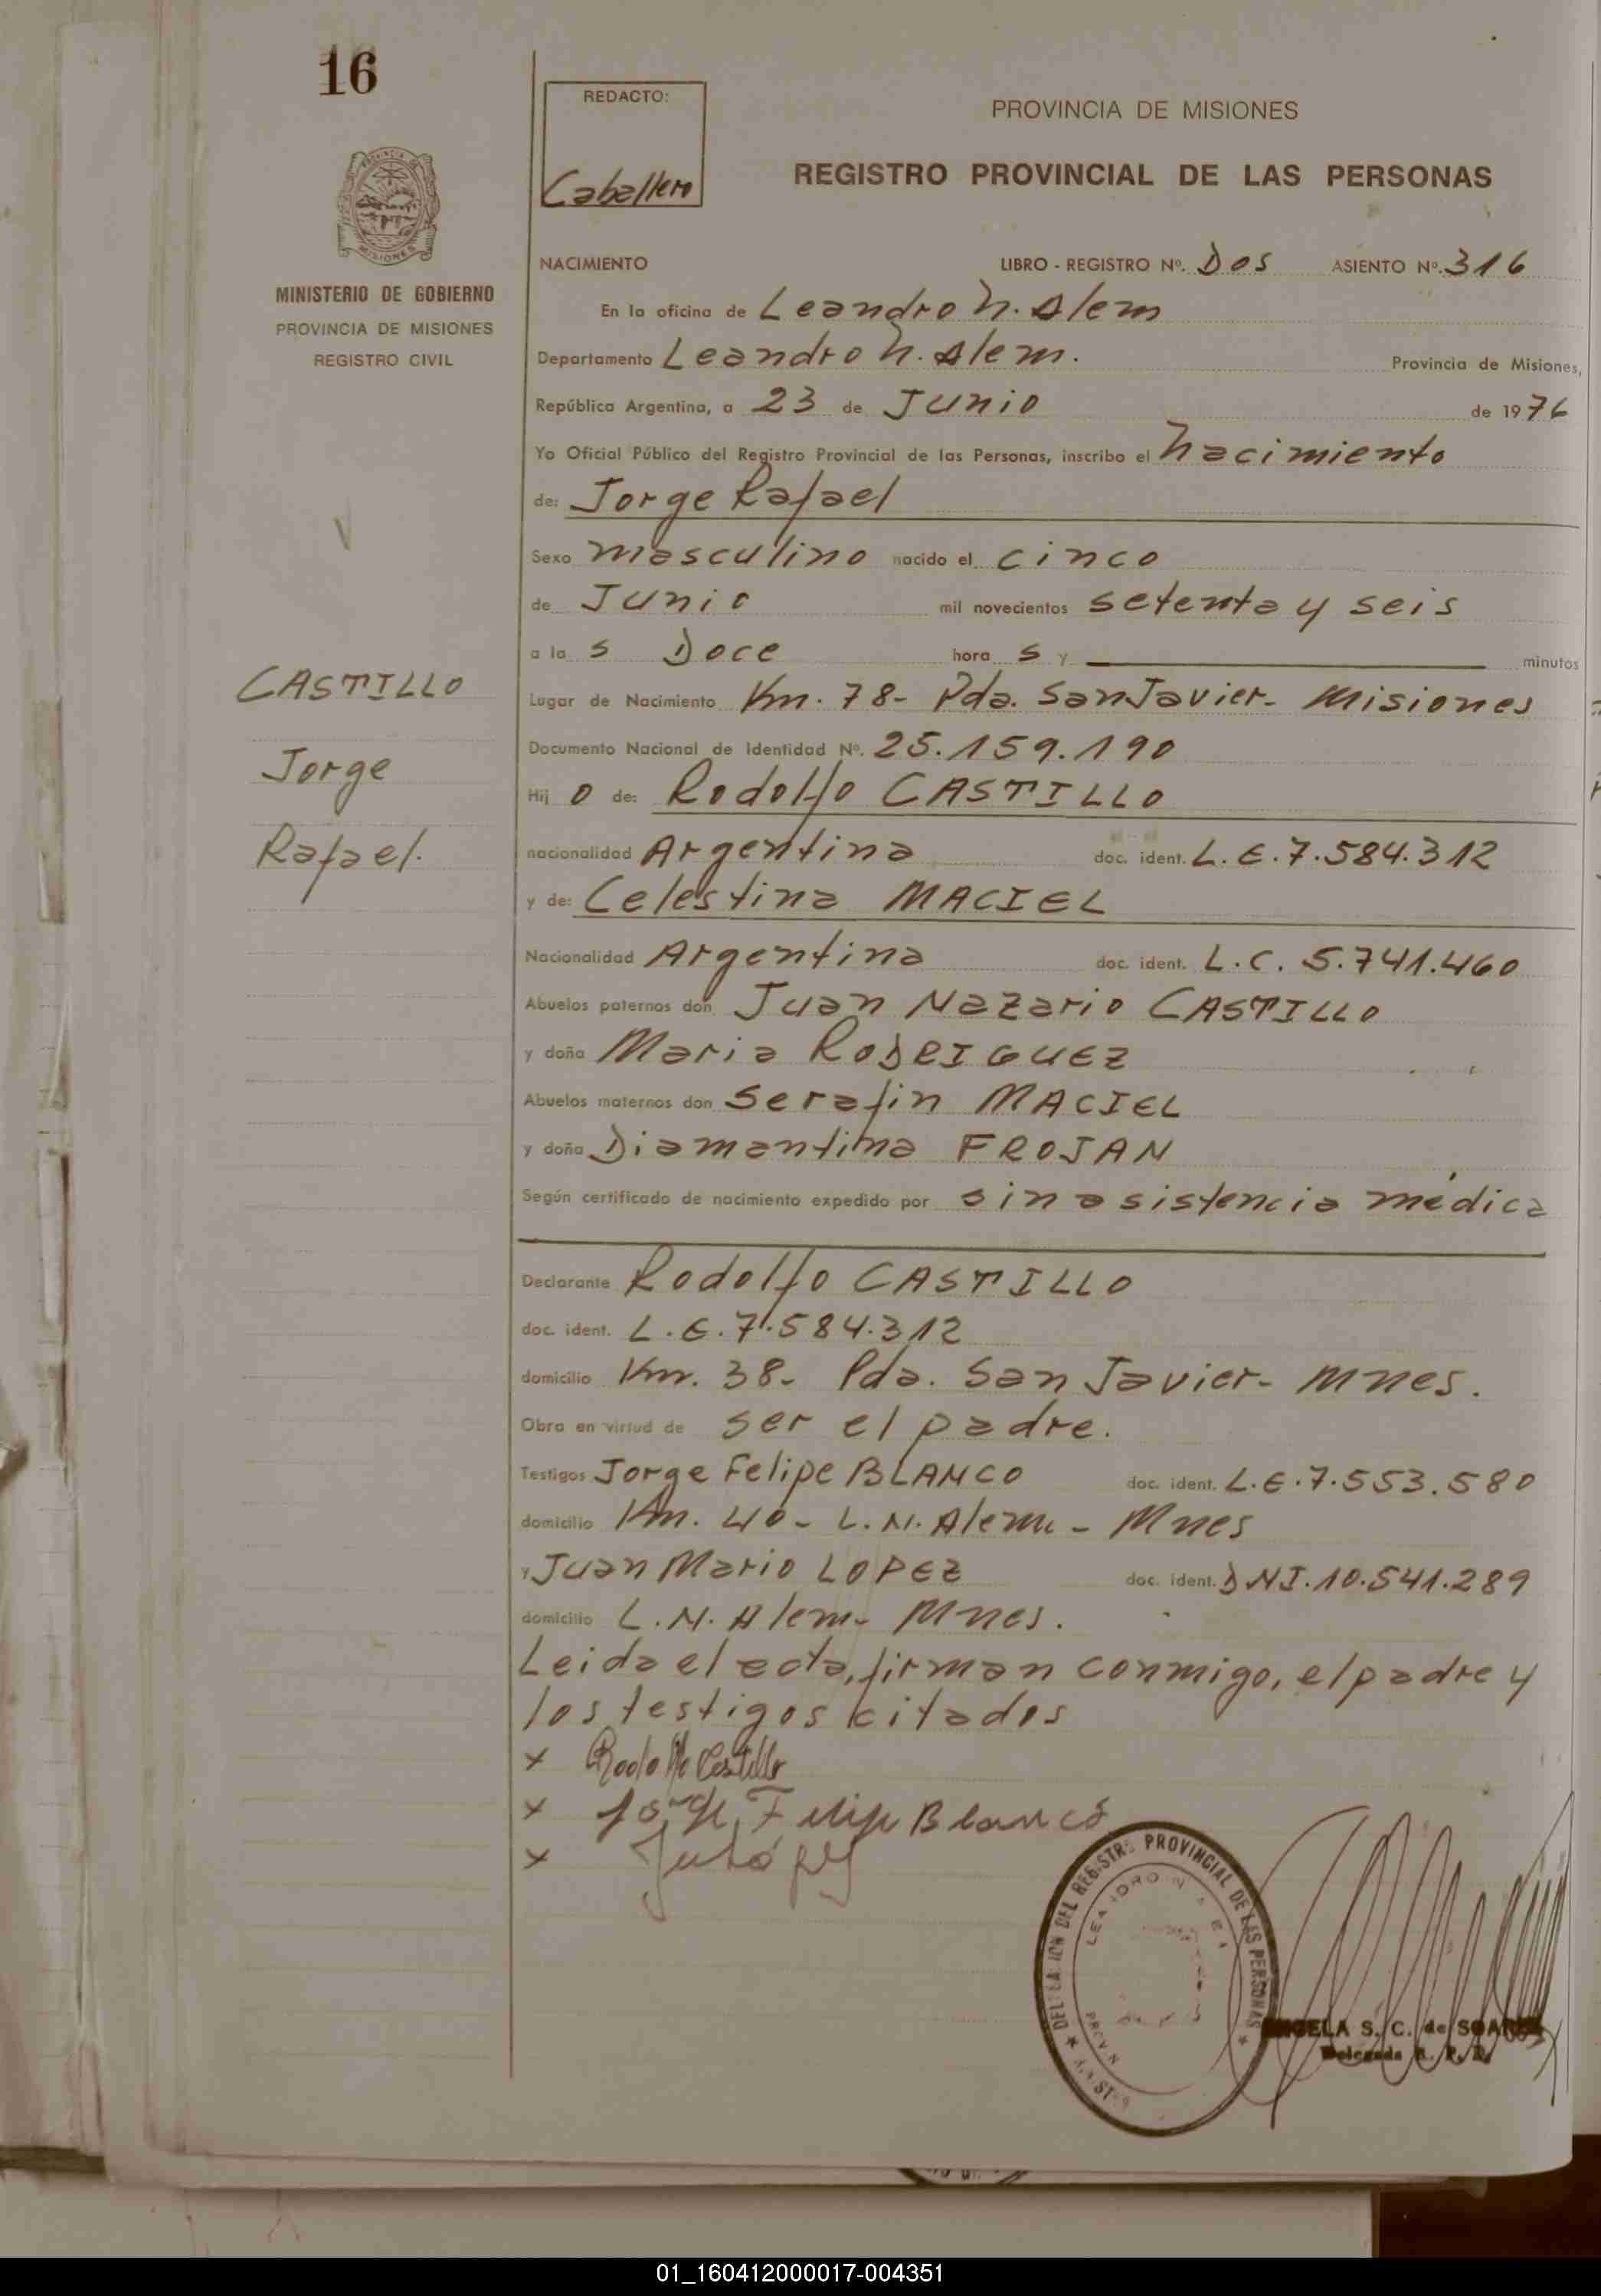 16
REDACTO:
Caballero
PROVINCIA DE MISIONES
REGISTRO PROVINCIAL DE LAS PERSONAS
MISIONES
MINISTERIO DE GOBIERNO
PROVINCIA DE MISIONES
REGISTRO CIVIL
NACIMIENTO LIBRO - REGISTRO Nº. Dos ASIENTO Nº. 316
En la oficina de Leandro N. Alem
Departamento Leandro N. Alem. Provincia de Misiones,
República Argentina, a 23 de Junio de 1976
Yo Oficial Público del Registro Provincial de las Personas, inscribo el nacimiento
de: Jorge Rafael
Sexo masculino nacido el cinco
de Junio mil novecientos setenta y seis
a la s Doce hora s y minutos
CASTILLO
Jorge
Rafael.
Lugar de Nacimiento Km. 78- Pda. San Javier- Misiones
Documento Nacional de Identidad Nº. 25.159.190
Hij o de: Rodolfo CASTILLO
nacionalidad Argentina doc. ident. L.E.7.584.312
y de: Celestina MACIEL
Nacionalidad Argentina doc. ident. L.C. 5.741.460
Abuelos paternos don Juan Nazario CASTILLO
y doña Maria RODRIGUEZ
Abuelos maternos don Serafin MACIEL
y doña Diamantina FROJAN
Según certificado de nacimiento expedido por sin asistencia médica
Declarante Rodolfo CASTILLO
doc. ident. L.E.7.584.312
domicilio Km. 38- Pda. San Javier- Mnes.
Obra en virtud de ser el padre.
Testigos Jorge Felipe BLANCO doc. ident. L.E.7.553.580
domicilio Km. 40- L.N. Alem - Mnes
y Juan Mario LOPEZ doc. ident. DNI.10.541.289
domicilio L.N. Alem- Mnes.
Leida el acta, firman conmigo, el padre y
los testigos citados
x Rodolfo Castillo
x Jorge Felipe Blanco
x
DELEGACION DEL REGISTRO PROVINCIAL DE LAS PERSONAS
LEANDRO N. ALEM
ANGELA S. C. de SOAREZ
Delegada R. P. P.
01_160412000017-004351